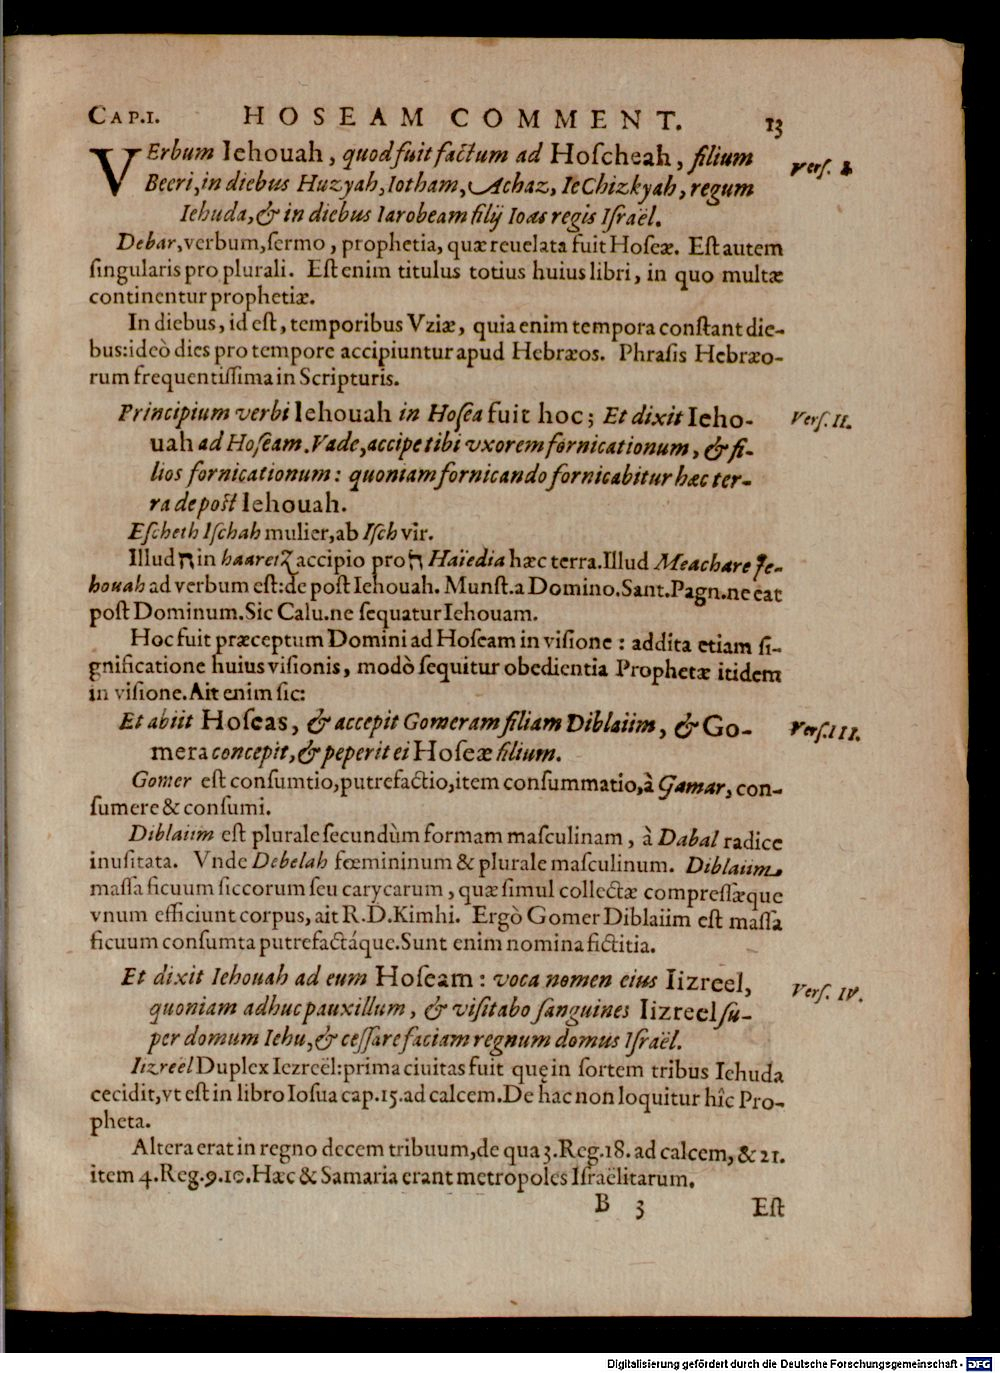 CAP.I. HOSEAM COMMENT. 13
VErbum Iehouah, quod fuit factum ad Hoscheah, filium
Beeri, in diebus Huzyah, Iotham, Achaz, IeChizkyah, regum
Iehuda, & in diebus Iarobeam filij Ioas regis Israël.
Vers. I.
Debar, verbum, sermo, prophetia, quæ reuelata fuit Hoseæ. Est autem
singularis pro plurali. Est enim titulus totius huius libri, in quo multæ
continentur prophetiæ.
In diebus, id est, temporibus Vziæ, quia enim tempora constant die-
bus: ideò dies pro tempore accipiuntur apud Hebræos. Phrasis Hebræo-
rum frequentissima in Scripturis.
Principium verbi Iehouah in Hosea fuit hoc; Et dixit Ieho-
uah ad Hoseam. Vade, accipe tibi vxorem fornicationum, & fi-
lios fornicationum: quoniam fornicando fornicabitur hæc ter-
ra de post Iehouah.
Vers. II.
Escheth Ischah mulier, ab Isch vir.
Illud ה in haaretz accipio pro ה Haïedia hæc terra. Illud Meachare Je-
houah ad verbum est: de post Iehouah. Munst. a Domino. Sant. Pagn. ne eat
post Dominum. Sic Calu. ne sequatur Iehouam.
Hoc fuit præceptum Domini ad Hoseam in visione: addita etiam si-
gnificatione huius visionis, modò sequitur obedientia Prophetæ itidem
in visione. Ait enim sic:
Et abiit Hoseas, & accepit Gomeram filiam Diblaiim, & Go-
mera concepit, & peperit ei Hoseæ filium.
Vers. III.
Gomer est consumtio, putrefactio, item consummatio, à Gamar, con-
sumere & consumi.
Diblaiim est plurale secundùm formam masculinam, à Dabal radice
inusitata. Vnde Debelah fœmininum & plurale masculinum. Diblaiim
massa ficuum siccorum seu carycarum, quæ simul collectæ compressæque
vnum efficiunt corpus, ait R. D. Kimhi. Ergò Gomer Diblaiim est massa
ficuum consumta putrefactáque. Sunt enim nomina fictitia.
Et dixit Iehouah ad eum Hoseam: voca nomen eius Iizreel,
quoniam adhuc pauxillum, & visitabo sanguines Iizreel su-
per domum Iehu, & cessare faciam regnum domus Israël.
Vers. IV.
Iizreël Duplex Iezreël: prima ciuitas fuit quę in sortem tribus Iehuda
cecidit, vt est in libro Iosua cap. 15. ad calcem. De hac non loquitur hîc Pro-
pheta.
Altera erat in regno decem tribuum, de qua 3. Reg. 18. ad calcem, & 21.
item 4. Reg. 9. 10. Hæc & Samaria erant metropoles Israëlitarum.
B 3 Est
Digitalisierung gefördert durch die Deutsche Forschungsgemeinschaft - DFG